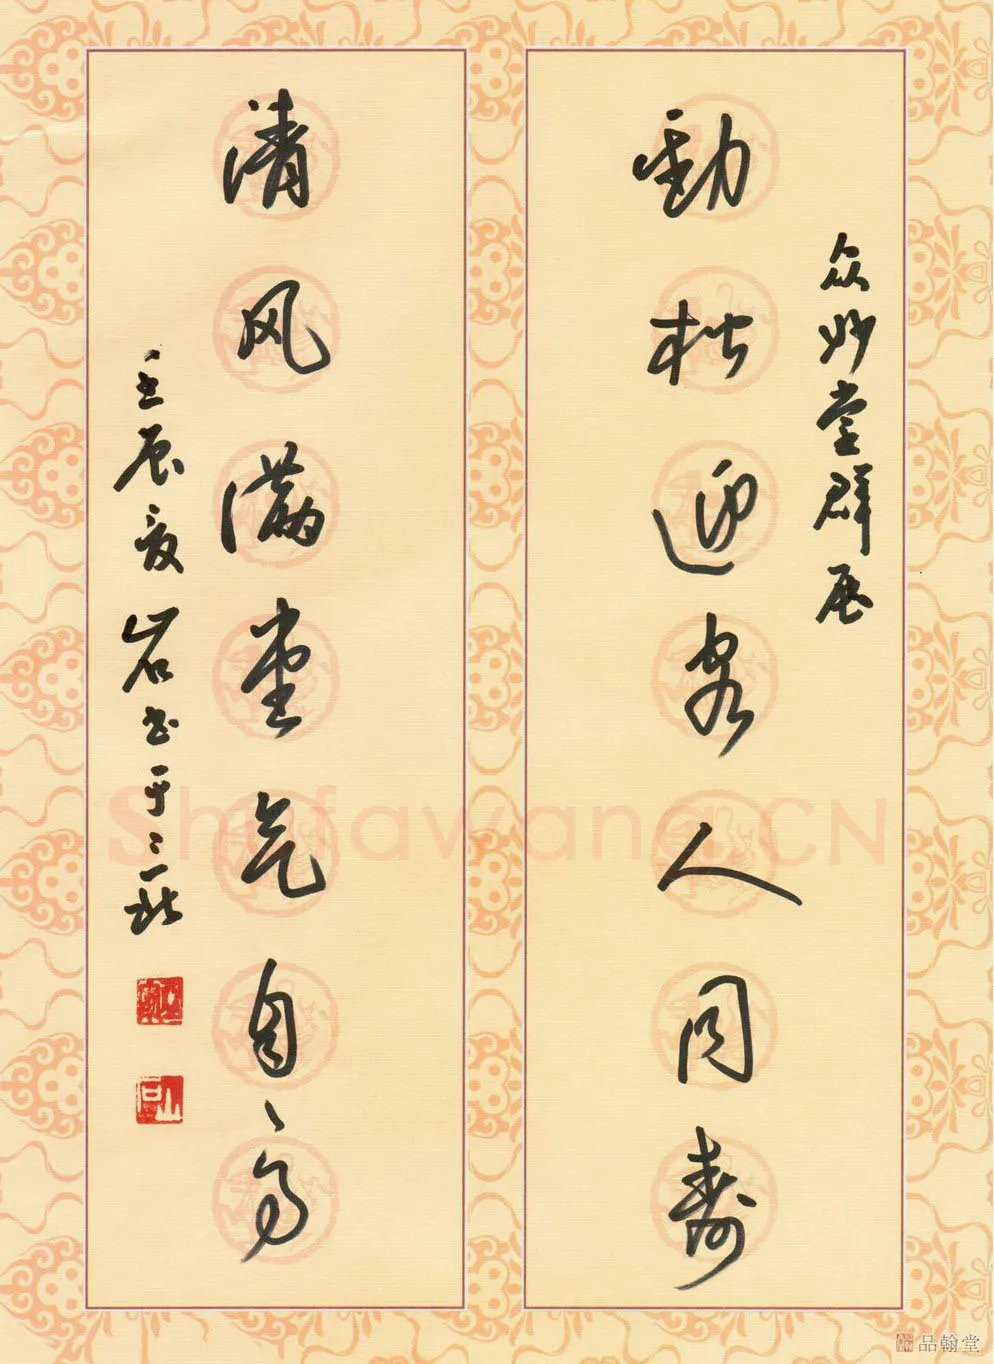 众妙堂群展
劲松迎客人同寿
清风满堂气自高
壬辰夏岩书于三
山石
Shufawang.CN
品翰堂